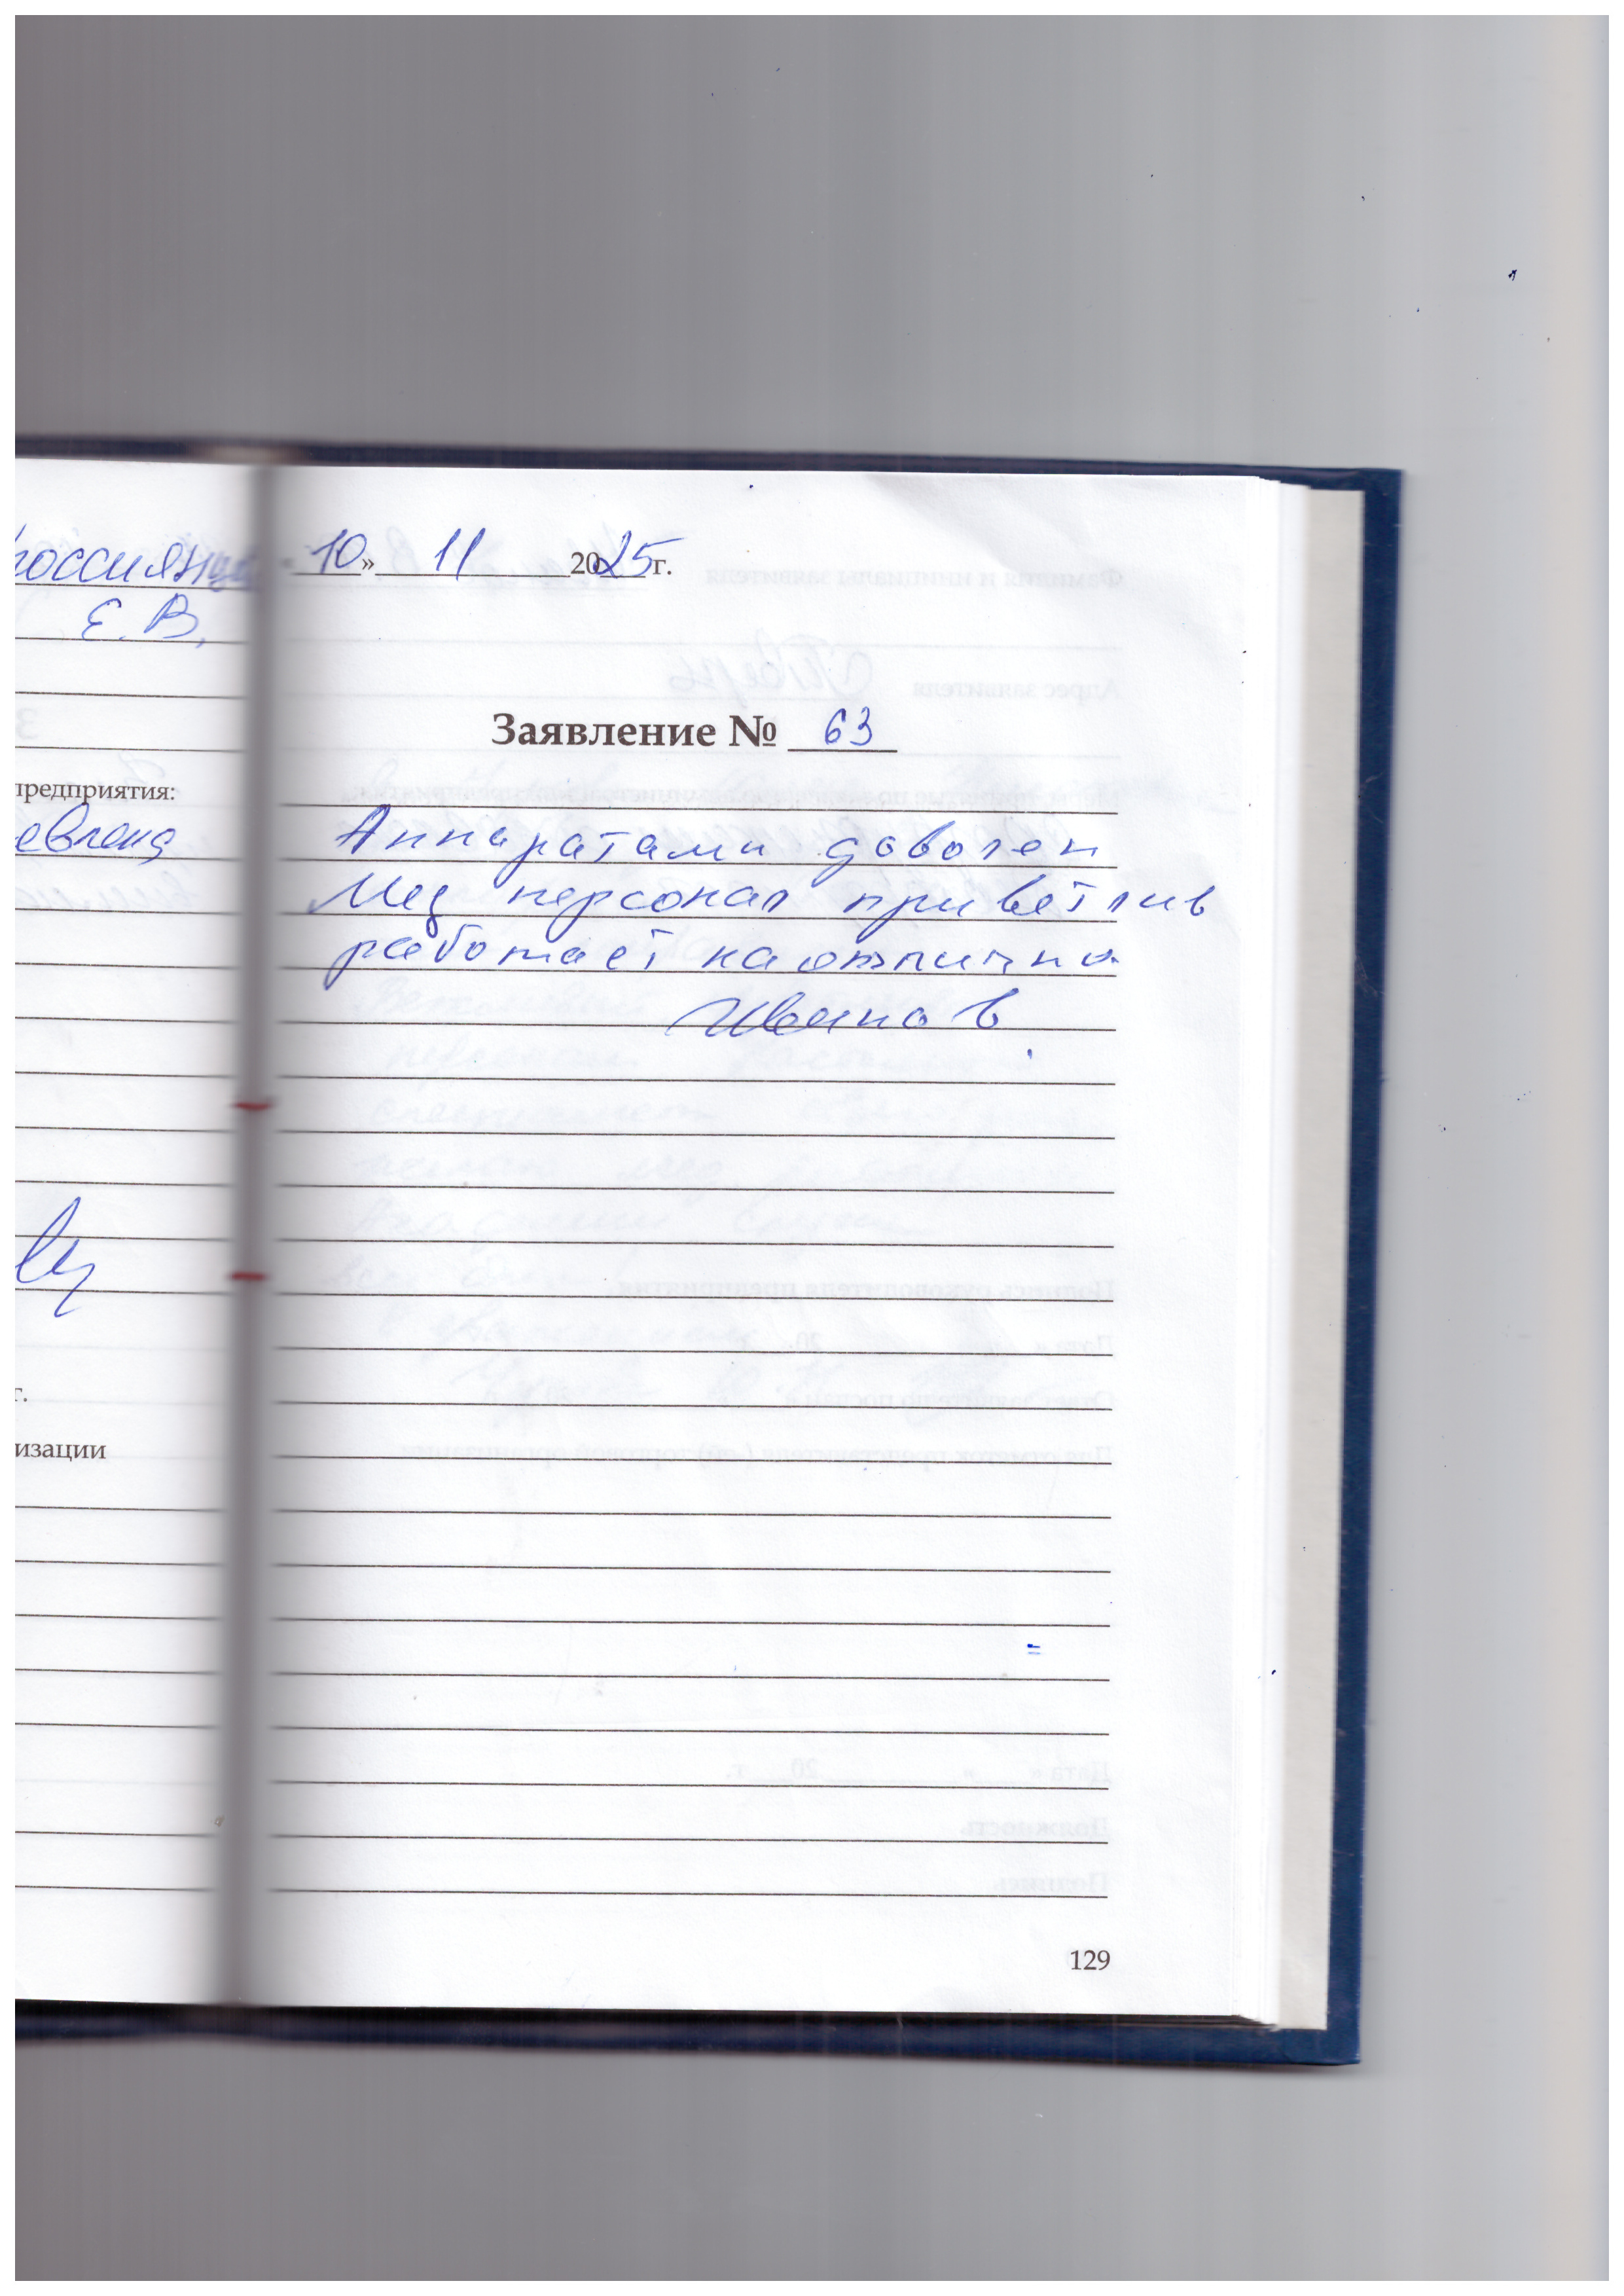 Е. В,
предприятия:
г.
изации
10» 11 2025 г.
Заявление № 63
Аппаратами доволен
Мед персонал приветлив
работает на отлично
Иванов
129